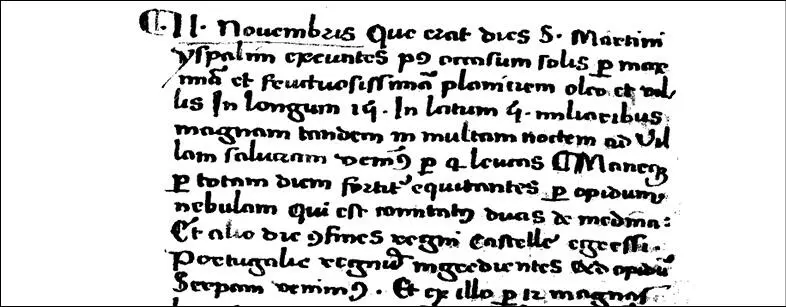 ¶. 11. Nouembris Que erat dies S. Martini
yspalim exeuntes pꝰ occasum solis ꝑ max
mā et fructuosissimā planitiem oleo et vil
lis In longum In latum miliaribus
magnam tandem in multam noctem ad Vil
lam salucram venimꝰ ꝑ 4 leucas ¶ Maneqꝫ
ꝑ totam diem fortit' equitantes ꝑ opidum
nebulam Qui est comitatꝰ de medina:
Et alio die ꝯfines regni Castelle egressi.
Portugalie regnū ingredientes Ad opidū
Serpam venimꝰ. Et ex illo ꝑ 12 magnas